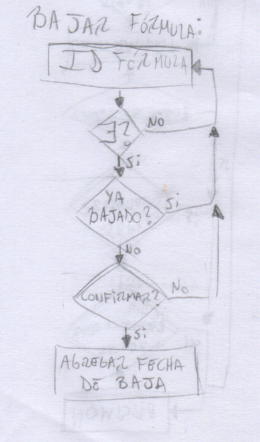 BAJAR FÓRMULA:
ID FÓRMULA
∃?
No
Si
YA
BAJADO?
Si
No
CONFIRMAR?
No
Si
AGREGAR FECHA
DE BAJA